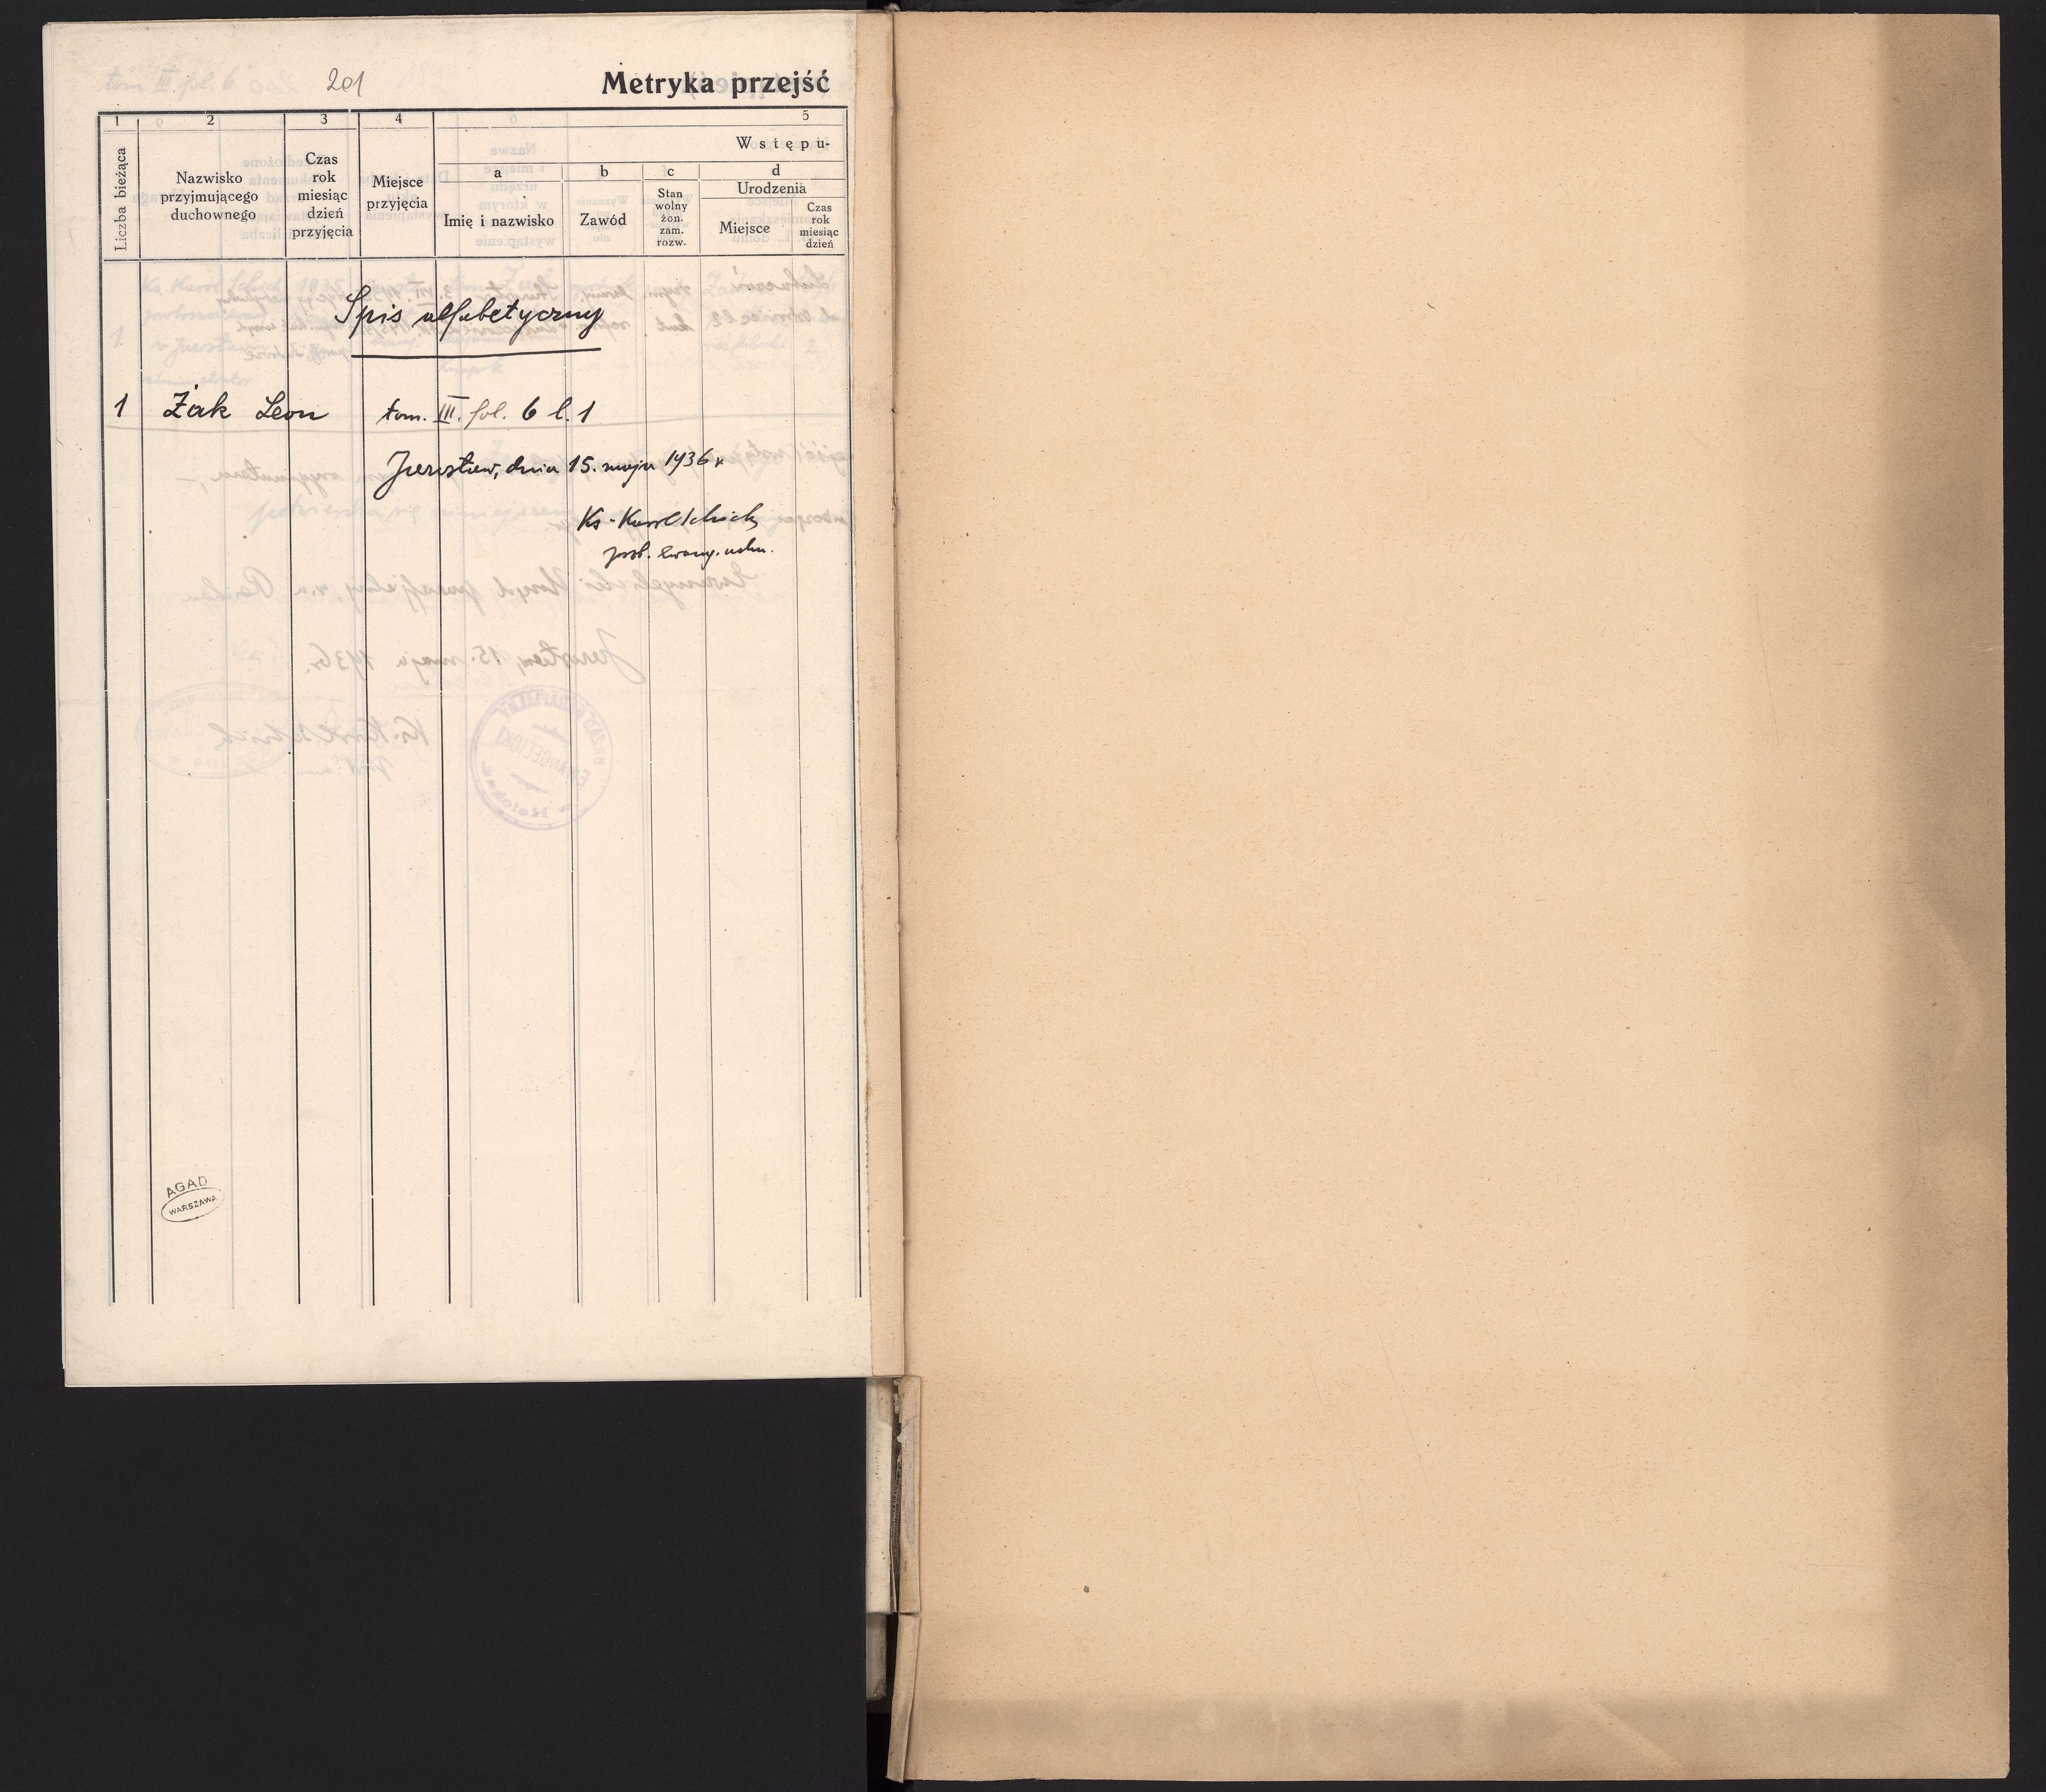 201
Metryka przejść
1 2 3 4 5
Wstępu-
Liczba bieżąca
Nazwisko
przyjmującego
duchownego
Czas
rok
miesiąc
dzień
przyjęcia
Miejsce
przyjęcia
a b c d
Imię i nazwisko
Zawód
Stan
wolny
żon.
zam.
rozw.
Urodzenia
Miejsce
Czas
rok
miesiąc
dzień
Spis alfabetyczny
1 Żak Leon tom. III. fol. 6 l. 1
Jarosław, dnia 15. maja 1936 r.
Ks. Karol
ewang.
AGAD
WARSZAWA